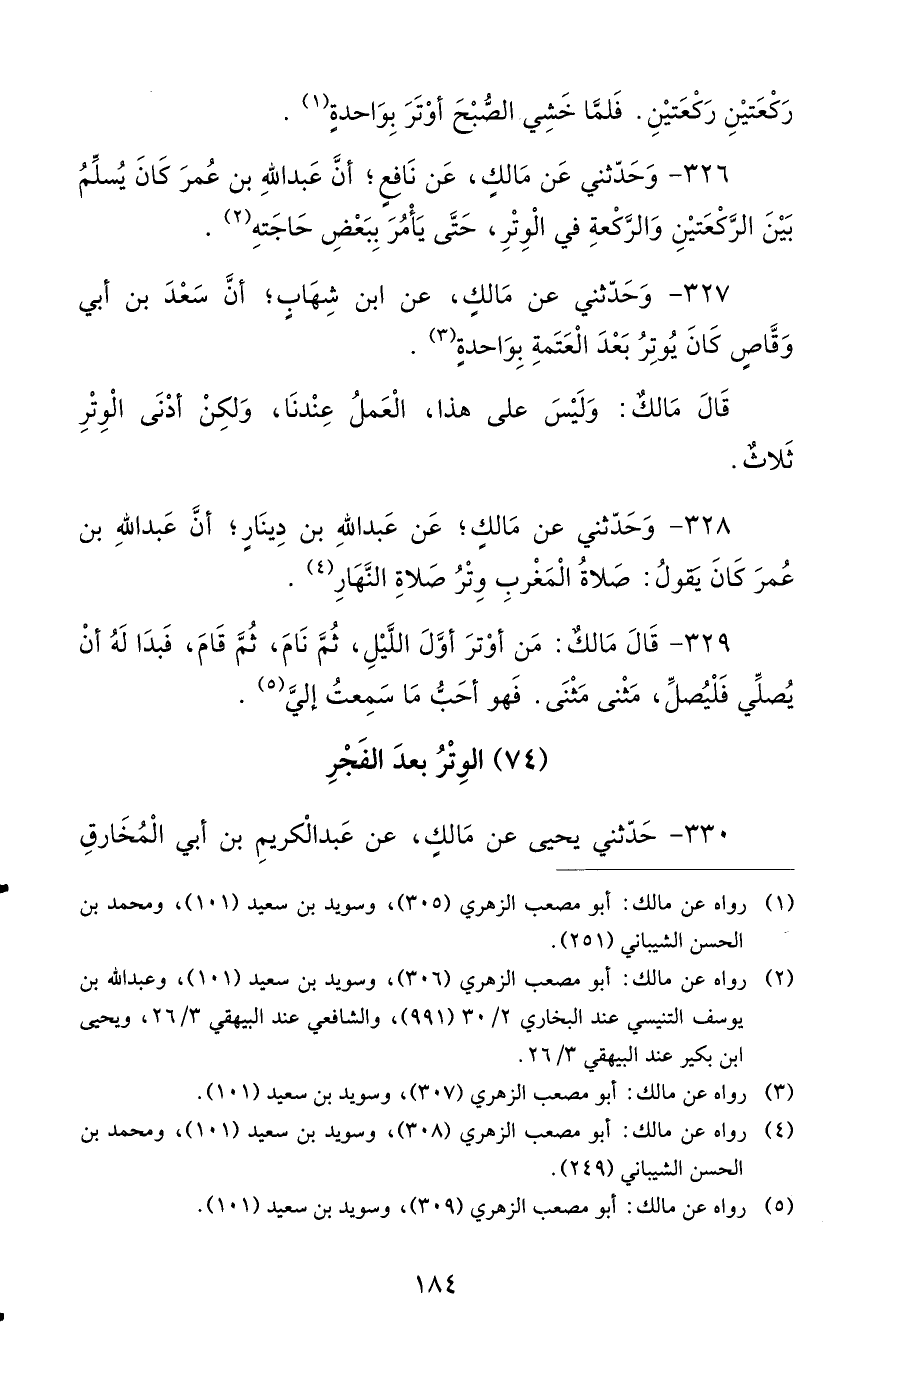 رَكْعَتيْنِ رَكْعَتيْنِ. فَلمَّا خَشِي الصُّبْحَ أوْتَرَ بِوَاحدةٍ(١) .
٣٢٦- وَحَدّثني عَن مَالكٍ، عَن نَافعٍ؛ أنَّ عَبدالله بن عُمرَ كَانَ يُسلِّمُ
بَيْنَ الرَّكْعَتيْنِ وَالرَّكْعةِ في الْوِتْرِ، حَتَّى يَأْمُرَ بِبَعْضِ حَاجَتهِ(٢) .
٣٢٧- وَحَدّثني عن مَالكٍ، عن ابن شِهَابٍ؛ أنَّ سَعْدَ بن أبي
وَقَّاصٍ كَانَ يُوتِرُ بَعْدَ الْعَتَمةِ بِوَاحدةٍ(٣) .
قَالَ مَالكٌ: وَلَيْسَ على هذا، الْعَملُ عِنْدنَا، وَلكِنْ أدْنَى الْوِتْرِ
ثَلاثٌ.
٣٢٨- وَحَدّثني عن مَالكٍ؛ عَن عَبدالله بن دِينَارٍ؛ أنَّ عَبدالله بن
عُمرَ كَانَ يَقولُ: صَلاةُ الْمَغْربِ وِتْرُ صَلاةِ النَّهَارِ(٤) .
٣٢٩- قَالَ مَالكٌ: مَن أوْترَ أوَّلَ اللَّيْلِ، ثُمَّ نَامَ، ثُمَّ قَامَ، فَبدَا لَهُ أنْ
يُصلِّي فَلْيُصلِّ، مَثْنى مَثْنَى. فَهو أحَبُّ مَا سَمِعتُ إليَّ(٥) .
(٧٤) الوِتْرُ بعدَ الفَجْرِ
٣٣٠- حَدّثني يحيى عن مَالكٍ، عن عَبدالْكريمِ بن أبي الْمُخَارقِ
(١) رواه عن مالك: أبو مصعب الزهري (٣٠٥)، وسويد بن سعيد (١٠١)، ومحمد بن
الحسن الشيباني (٢٥١).
(٢) رواه عن مالك: أبو مصعب الزهري (٣٠٦)، وسويد بن سعيد (١٠١)، وعبدالله بن
يوسف التنيسي عند البخاري ٢/ ٣٠ (٩٩١)، والشافعي عند البيهقي ٣/ ٢٦، ويحيى
ابن بكير عند البيهقي ٣/ ٢٦.
(٣) رواه عن مالك: أبو مصعب الزهري (٣٠٧)، وسويد بن سعيد (١٠١).
(٤) رواه عن مالك: أبو مصعب الزهري (٣٠٨)، وسويد بن سعيد (١٠١)، ومحمد بن
الحسن الشيباني (٢٤٩).
(٥) رواه عن مالك: أبو مصعب الزهري (٣٠٩)، وسويد بن سعيد (١٠١).
١٨٤